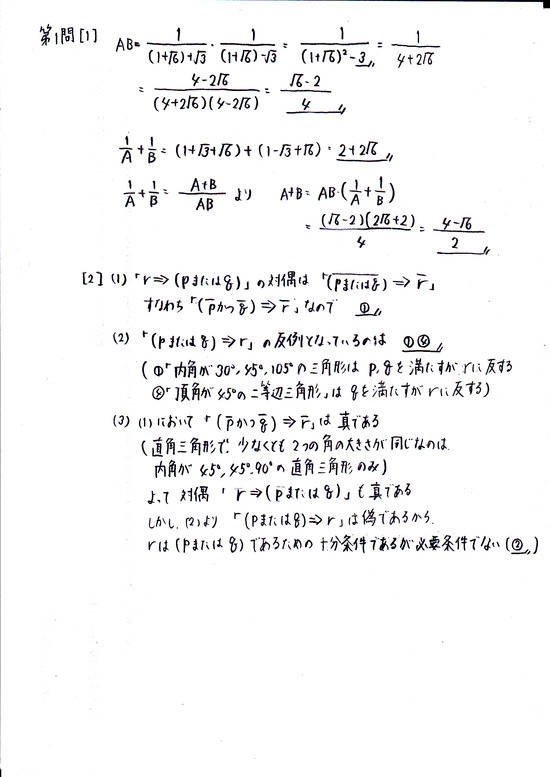 第1問 [1] AB = 1/((1+√6)+√3) · 1/((1+√6)-√3) = 1/((1+√6)²-3) = 1/(4+2√6)
= (4-2√6)/((4+2√6)(4-2√6)) = (√6-2)/4
1/A + 1/B = (1+√3+√6)+(1-√3+√6) = 2+2√6
1/A + 1/B = (A+B)/AB より A+B = AB·(1/A + 1/B)
= (√6-2)(2√6+2)/4 = (4-√6)/2
[2] (1) 「r⇒(pまたはq)」の対偶は「(p̅ま̅た̅は̅q̅)⇒r̅」
すなわち「(p̅かつq̅)⇒r̅」なので ①
(2) 「(pまたはq)⇒r」の反例となっているのは ①④
(①「内角が30°,45°,105°の三角形は p,qを満たすが、rに反する
④「頂角が45°の二等辺三角形」は qを満たすがrに反する)
(3) (1)において「(p̅かつq̅)⇒r̅」は真である
(直角三角形で、少なくとも2つの角の大きさが同じなのは、
内角が45°,45°,90°の直角三角形のみ)
よって対偶「r⇒(pまたはq)」も真である
しかし、(2)より「(pまたはq)⇒r」は偽であるから、
rは(pまたはq)であるための十分条件であるが必要条件でない(②)